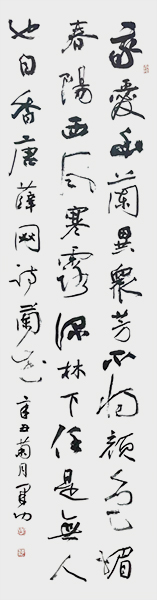 我愛幽蘭異衆芳不將顔色已媚
春陽西風寒露深林下任是無人
也自香唐薛网詩蘭花辛丑菊月軍功